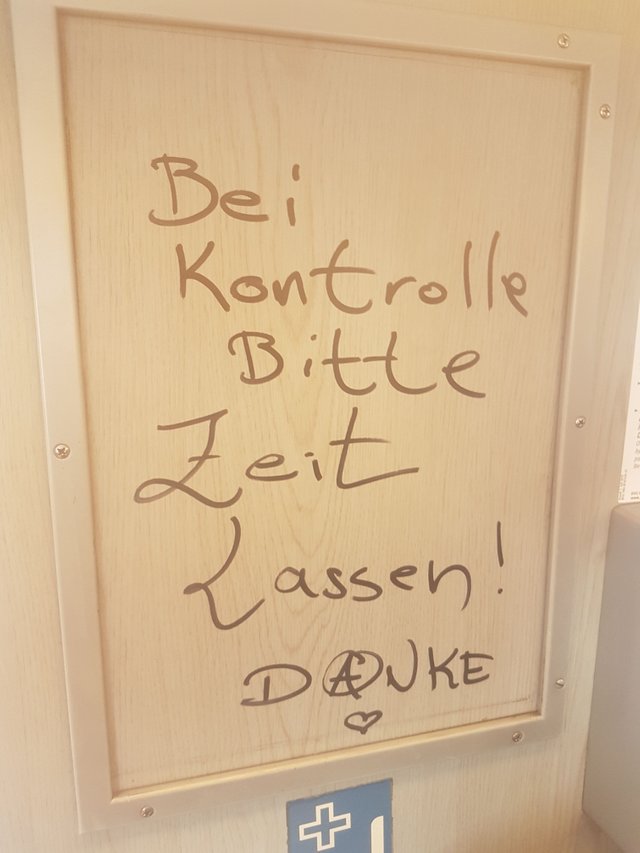 Bei
Kontrolle
Bitte
Zeit
Lassen!
DANKE